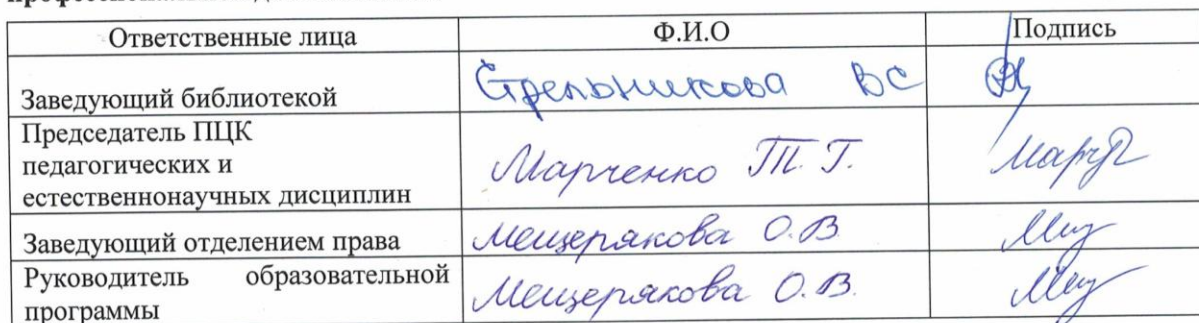 Ответственные лица Ф.И.О Подпись
Заведующий библиотекой Стрельникова ВС
Председатель ПЦК
педагогических и
естественнонаучных дисциплин Марченко Т. Г.
Заведующий отделением права Мещерякова О.В
Руководитель образовательной
программы Мещерякова О.В.